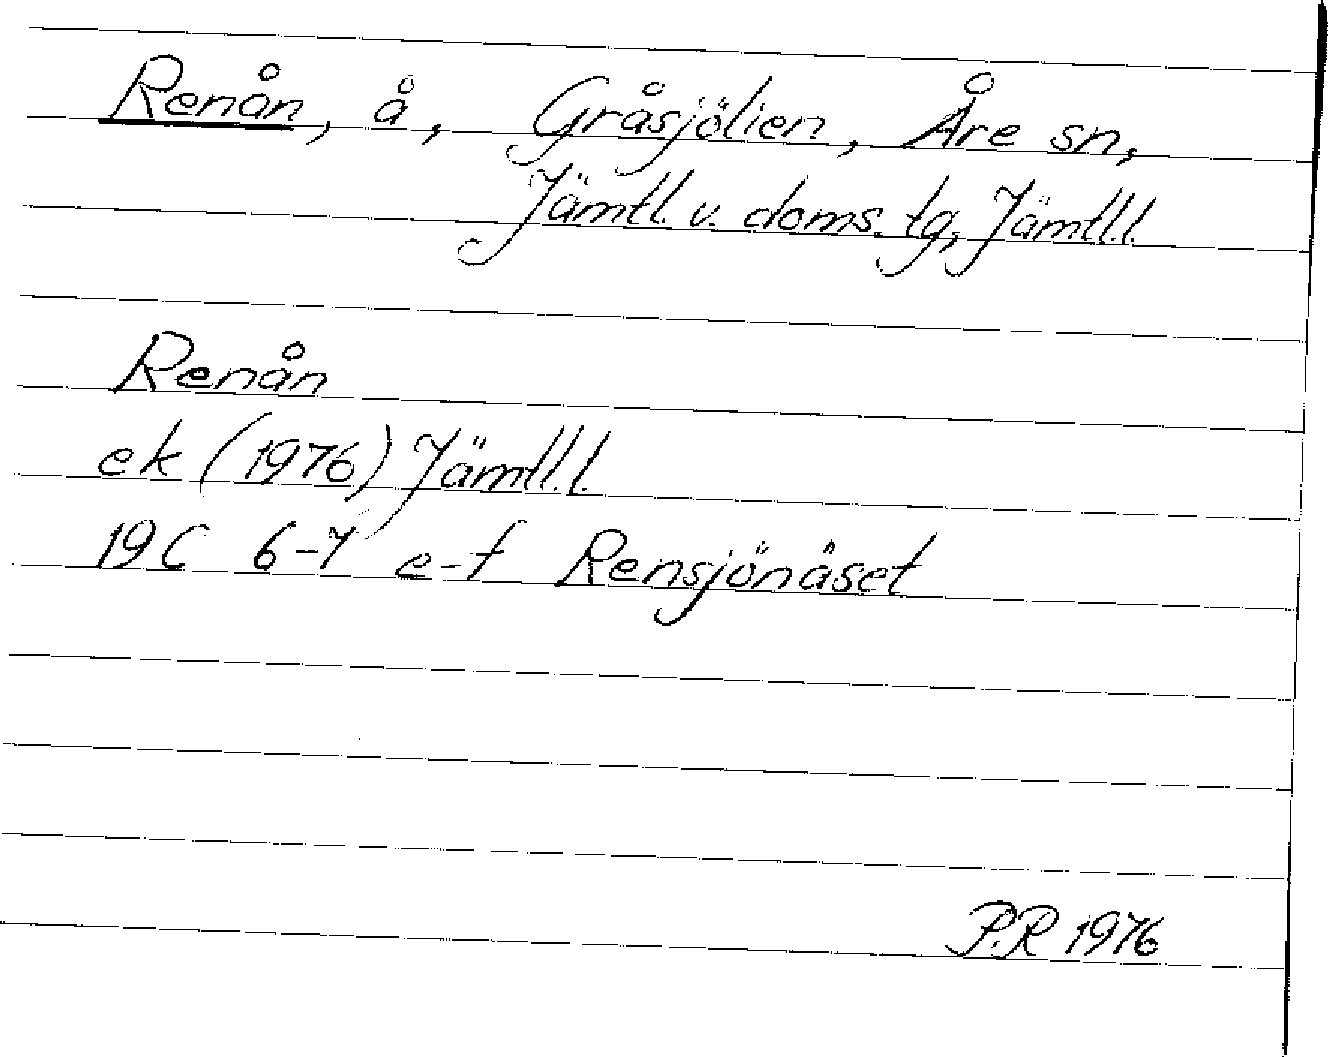 Renån, å, Gråsjölien, Åre sn,
Jämtl. v. doms. tg, Jämtl.l.
Renån
ek (1976) Jämtl.l.
19C 6-7 e-f Rensjönäset
P.R 1976